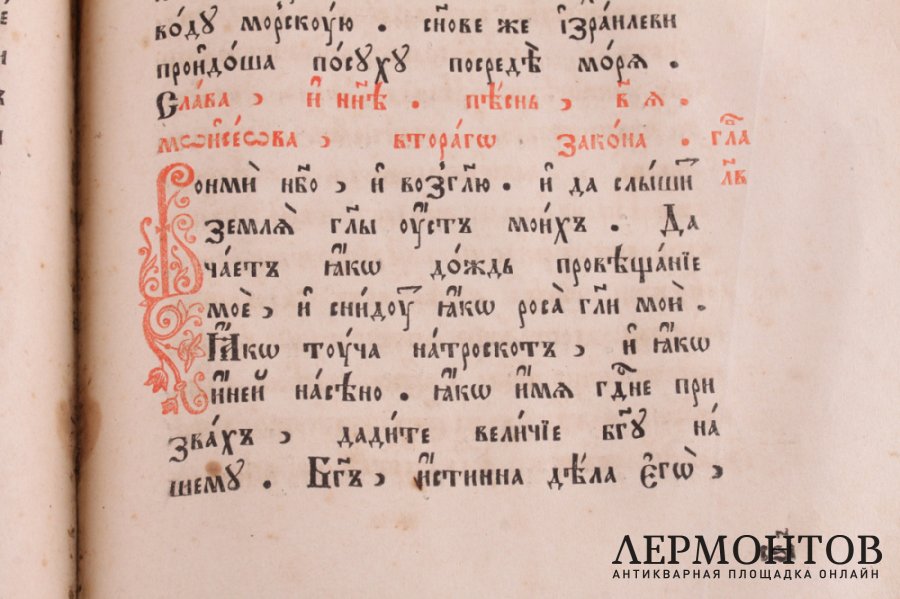 во́ду морску́ю . сн҃ове же і҆зра́илеви
прои҆до́ша по́суху посредѣ̀ мо́ря .
Сла́ва , и҆ нн҃ѣ . пѣ́снь , в҃я .
мѡѷсе́ѡва , втора́гѡ зако́на . гла̑
Вонмѝ нб҃о , и҆ возгл҃ю . и҆ да слы́шит л҃в
землѧ̀ гл҃ы оу҆́стъ мои́хъ . Да
ча́етъ ꙗ҆́кѡ до́ждь провѣща́нїе
моѐ , и҆ сни́дꙋт ꙗ҆́кѡ роса̀ гл҃и моѝ .
Ꙗ҆́кѡ тоу́ча на́троскотъ , и҆ ꙗ҆́кѡ
и҆́ней на́сѣно . ꙗ҆́кѡ и҆́мѧ гд҃не при
зва́хъ , дади́те вели́чїе бг҃у на́
шему . Бг҃ъ , и҆́стинна дѣ́ла є҆гѡ̀ ,
ЛЕРМОНТОВ
АНТИКВАРНАЯ ПЛОЩАДКА ОНЛАЙН